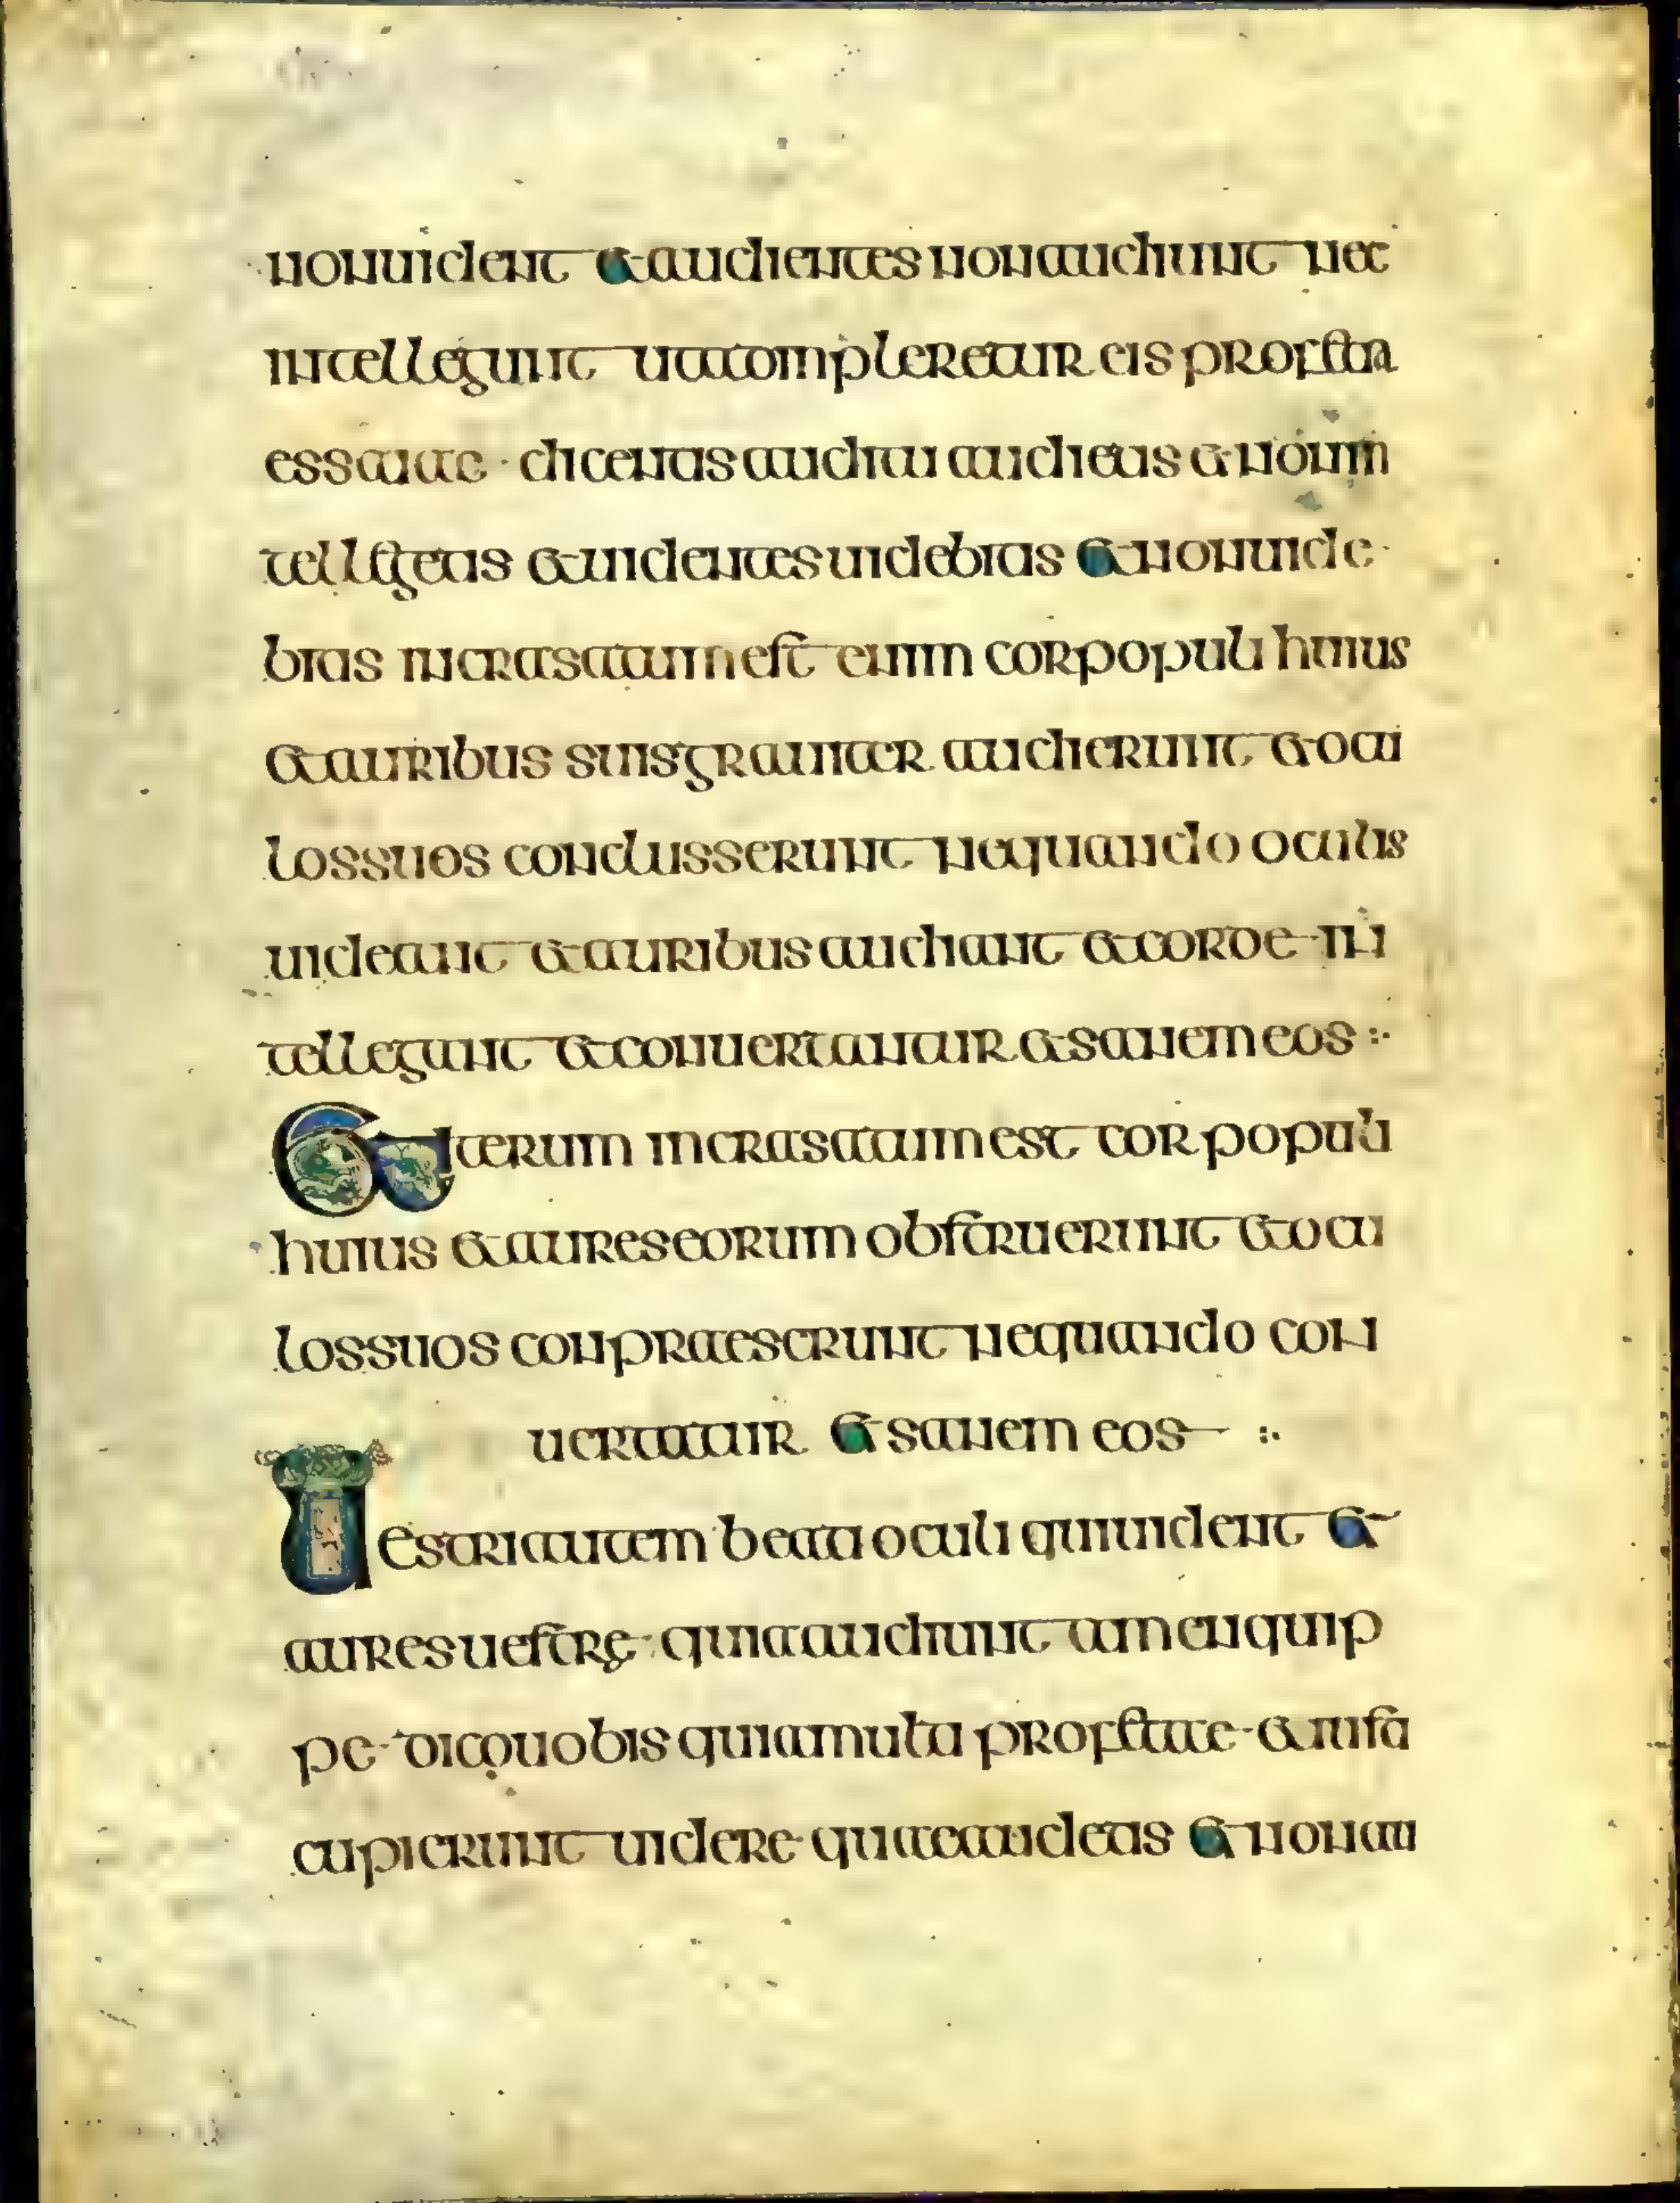 nonuident et audientes non audiunt nec
intellegunt ut adompleretur eis profetia
essaiae · dicentis auditu audietis et non in
tellegetis et uidentes uidebitis et non uide
bitis incrasatum est enim cor populi huius
et auribus suis grauiter audierunt et ocu
los suos conclusserunt nequando oculis
uideant et auribus audiant et corde in
tellegunt et conuertantur et sanem eos :·
Et iterum incrasatum est cor populi
huius et aures eorum obstruerunt et ocu
los suos conpraeserunt nequando con
uertatur et sanem eos :·
Uestri autem beati oculi qui uident et
aures uestre · quia audiunt amen quip
pe dico uobis quia multi profetae et iusti
cupierunt uidere quae auidetis et non au